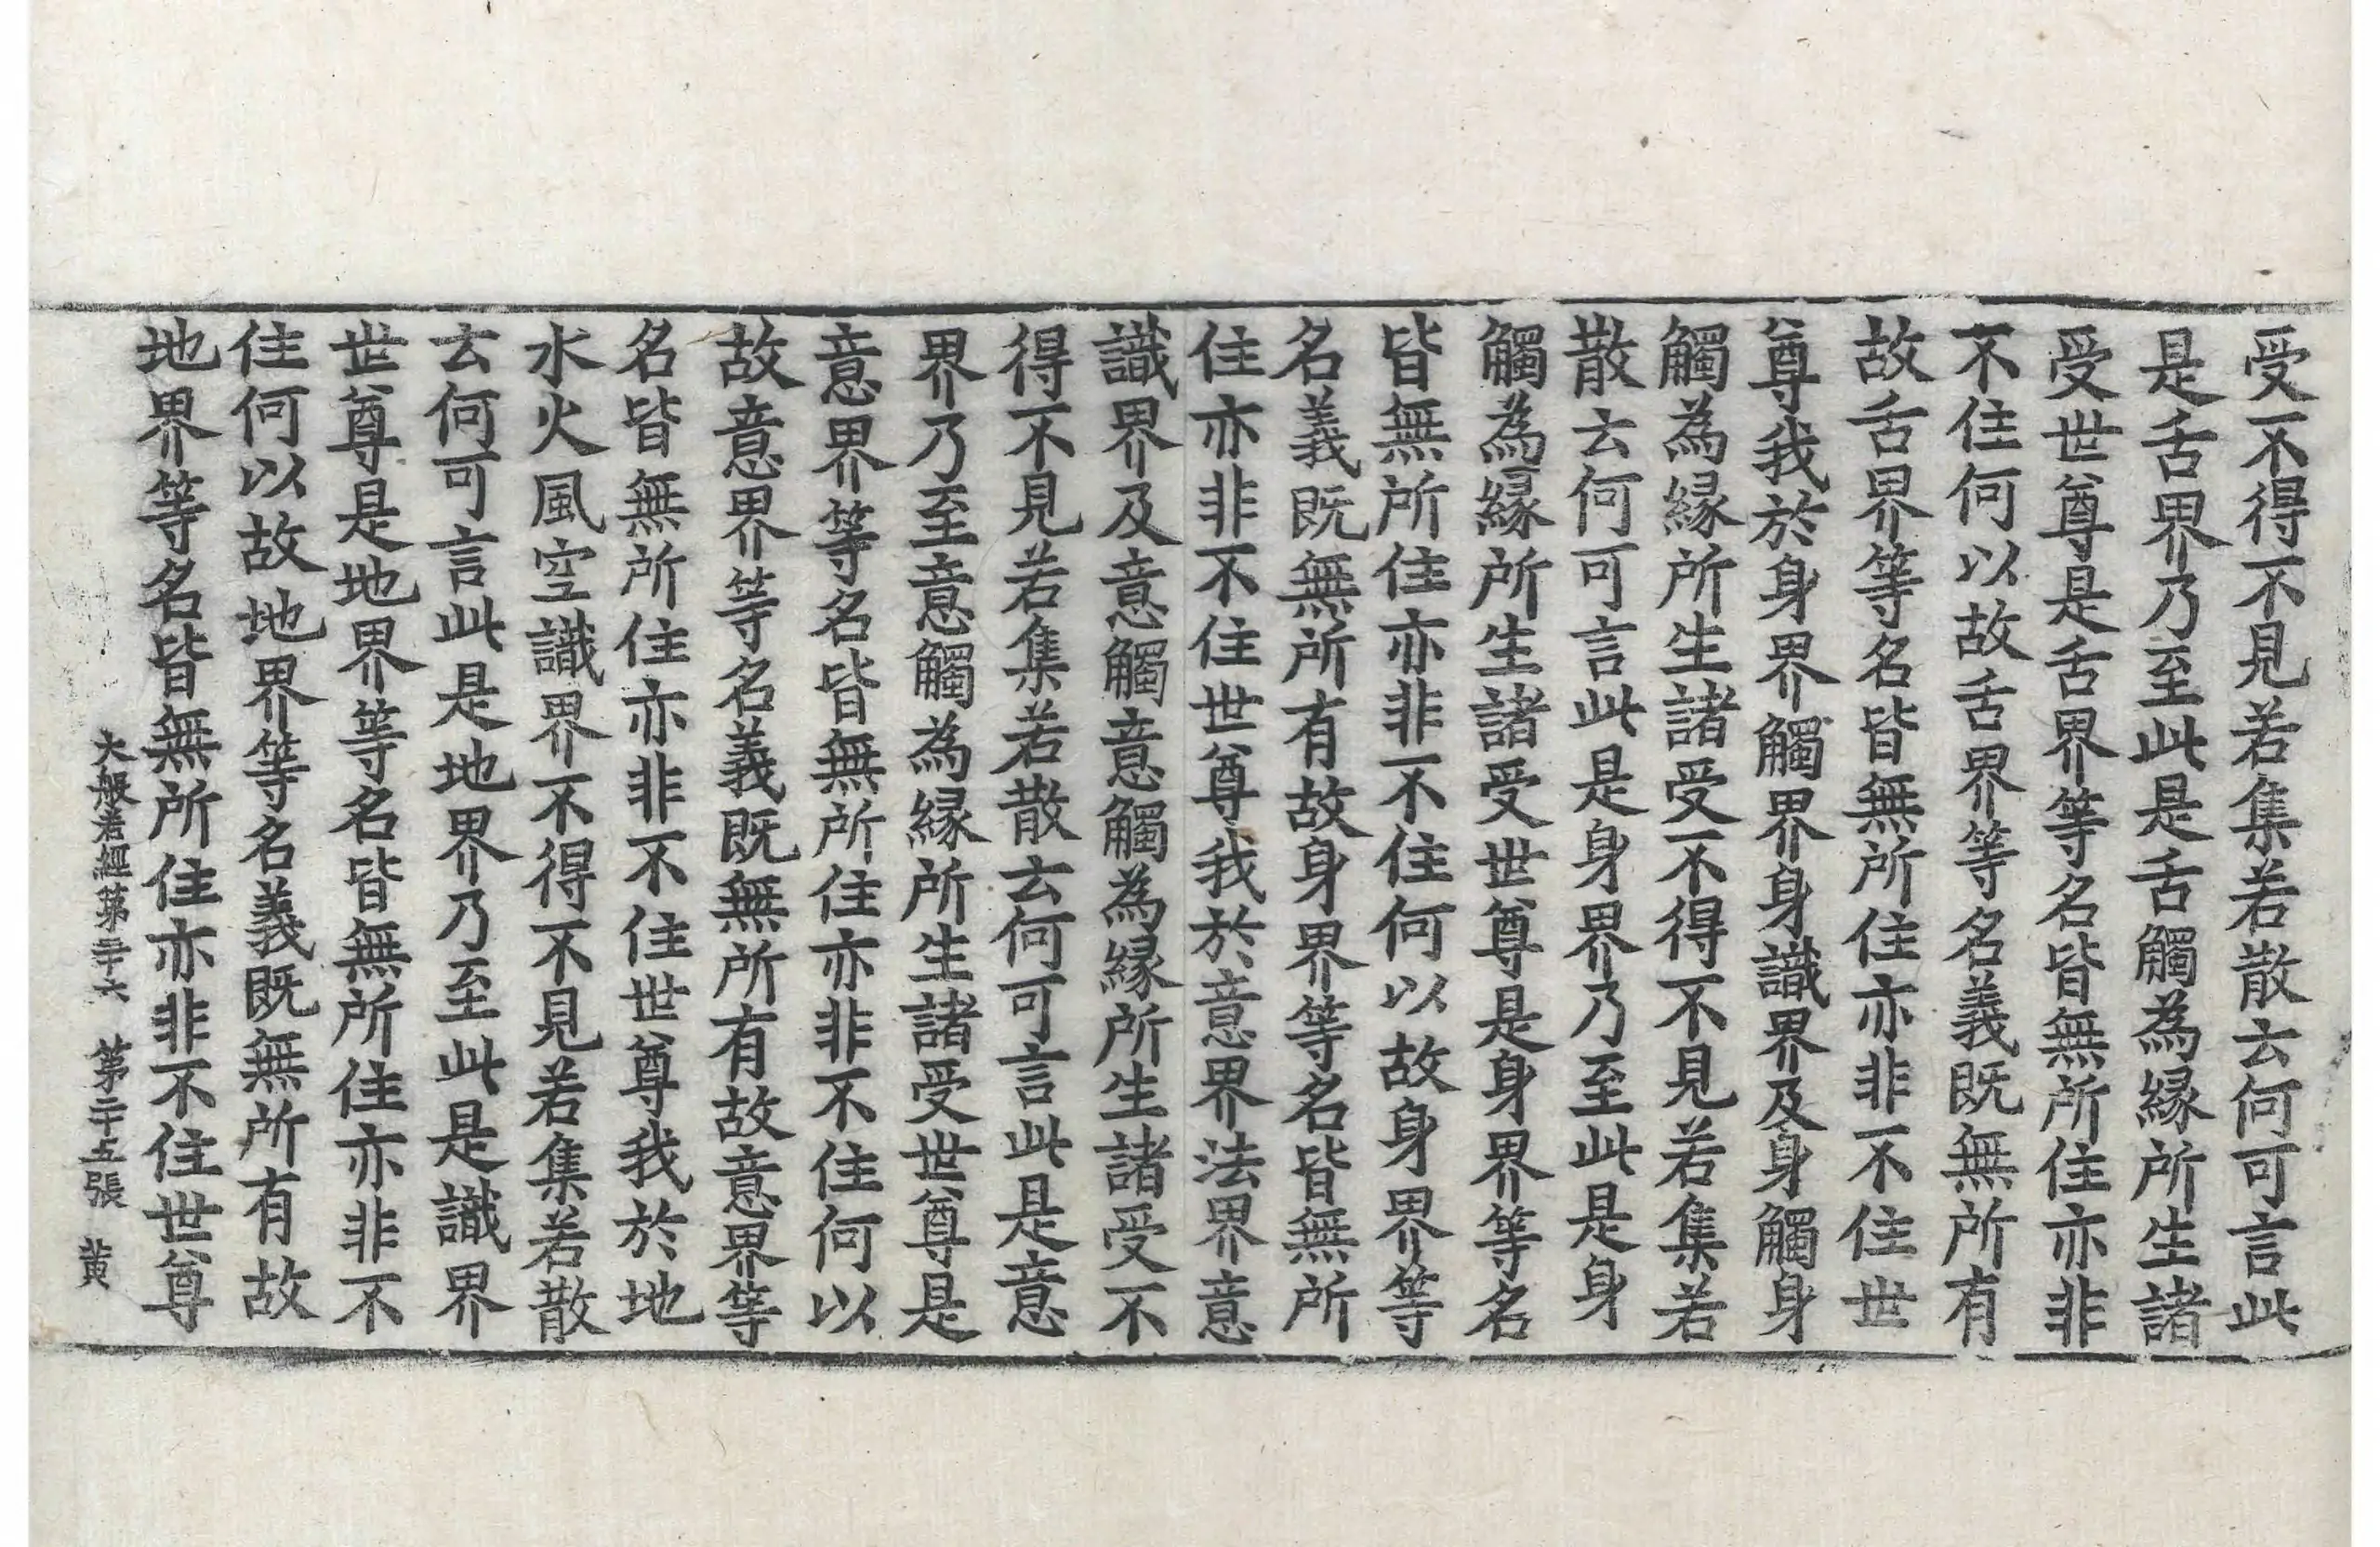 受不得不見若集若散云何可言此
是舌界乃至此是舌觸為縁所生諸
受世尊是舌界等名皆無所住亦非
不住何以故舌界等名義既無所有
故舌界等名皆無所住亦非不住世
尊我於身界觸界身識界及身觸身
觸為縁所生諸受不得不見若集若
散云何可言此是身界乃至此是身
觸為縁所生諸受世尊是身界等名
皆無所住亦非不住何以故身界等
名義既無所有故身界等名皆無所
住亦非不住世尊我於意界法界意
識界及意觸意觸為縁所生諸受不
得不見若集若散云何可言此是意
界乃至意觸為縁所生諸受世尊是
意界等名皆無所住亦非不住何以
故意界等名義既無所有故意界等
名皆無所住亦非不住世尊我於地
水火風空識界不得不見若集若散
云何可言此是地界乃至此是識界
世尊是地界等名皆無所住亦非不
住何以故地界等名義既無所有故
地界等名皆無所住亦非不住世尊
大般若經第三十六　第二十五張　黄